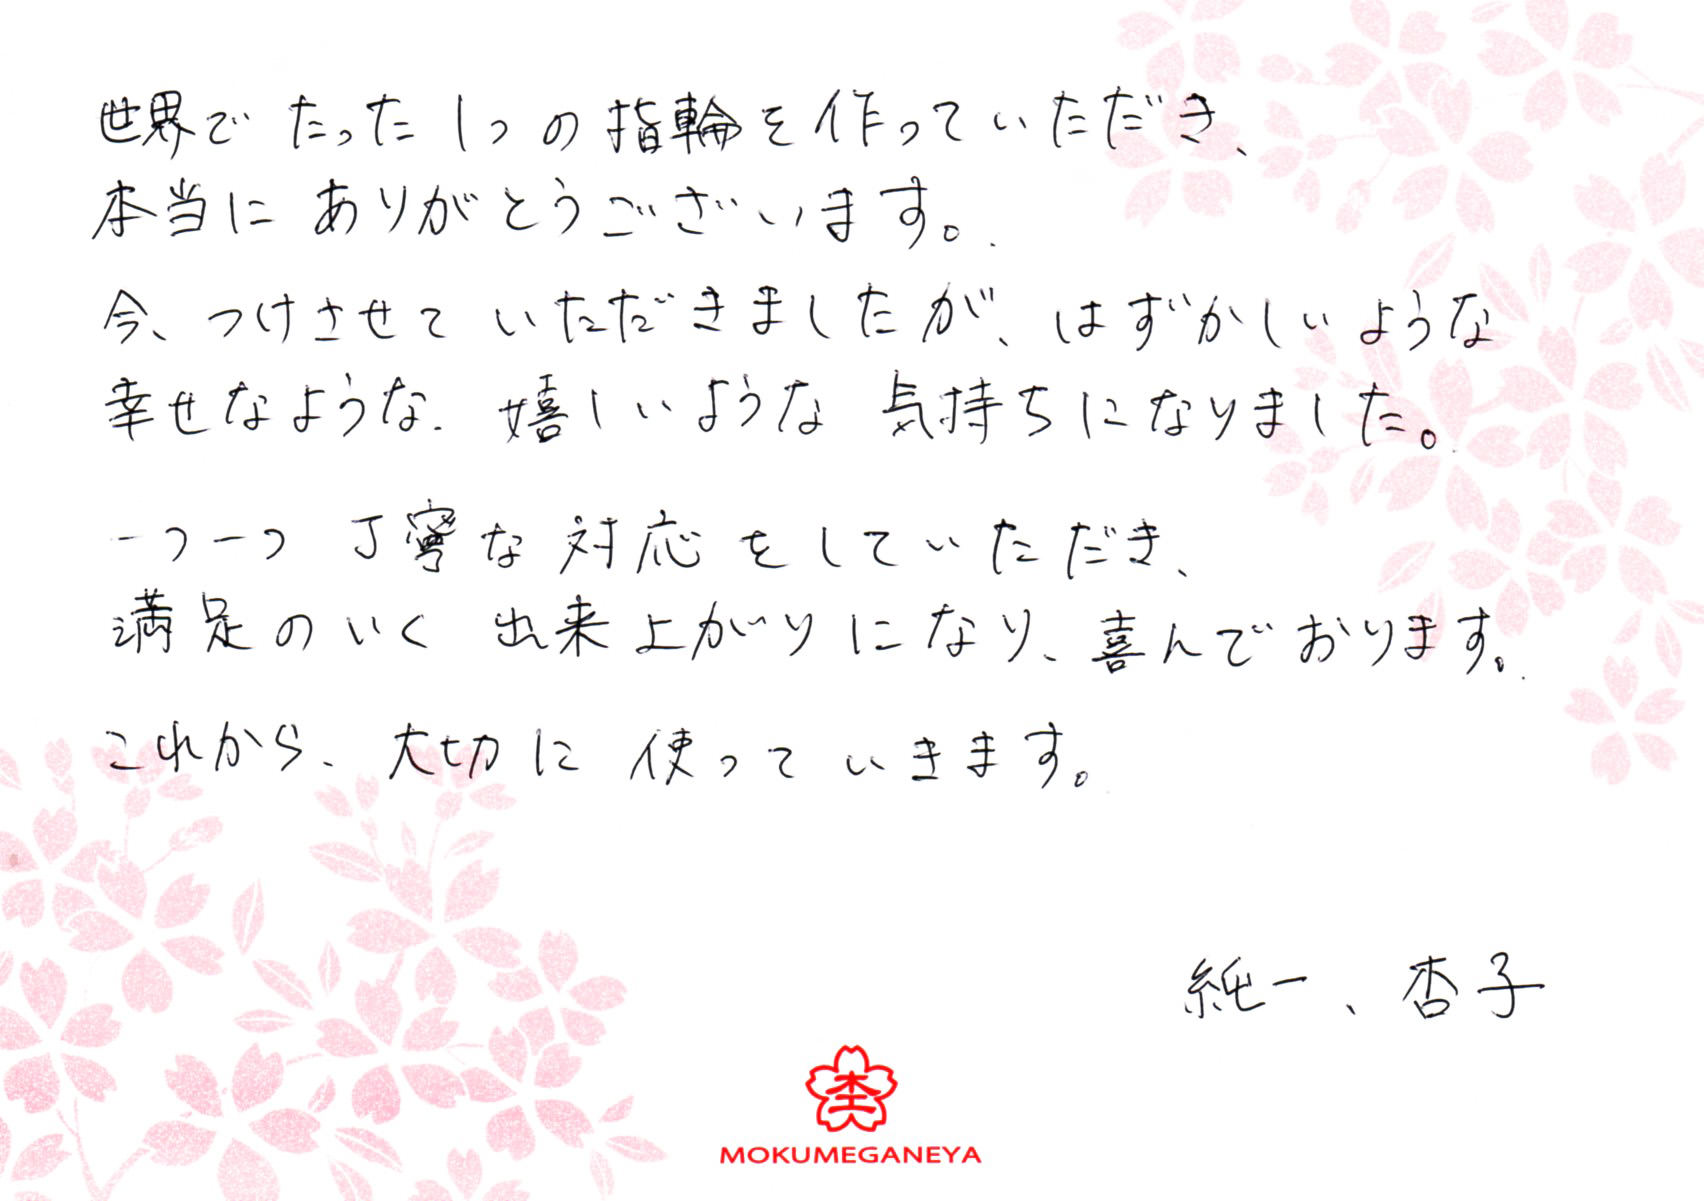 世界で たった1つの指輪を作っていただき、
本当に ありがとうございます。
今、つけさせて いただきましたが、はずかしいような
幸せなような、嬉しいような 気持ちになりました。
一つ一つ 丁寧な 対応をしていただき、
満足のいく 出来上がりになり、喜んでおります。
これから、大切に 使って いきます。
純一、杏子
MOKUMEGANEYA